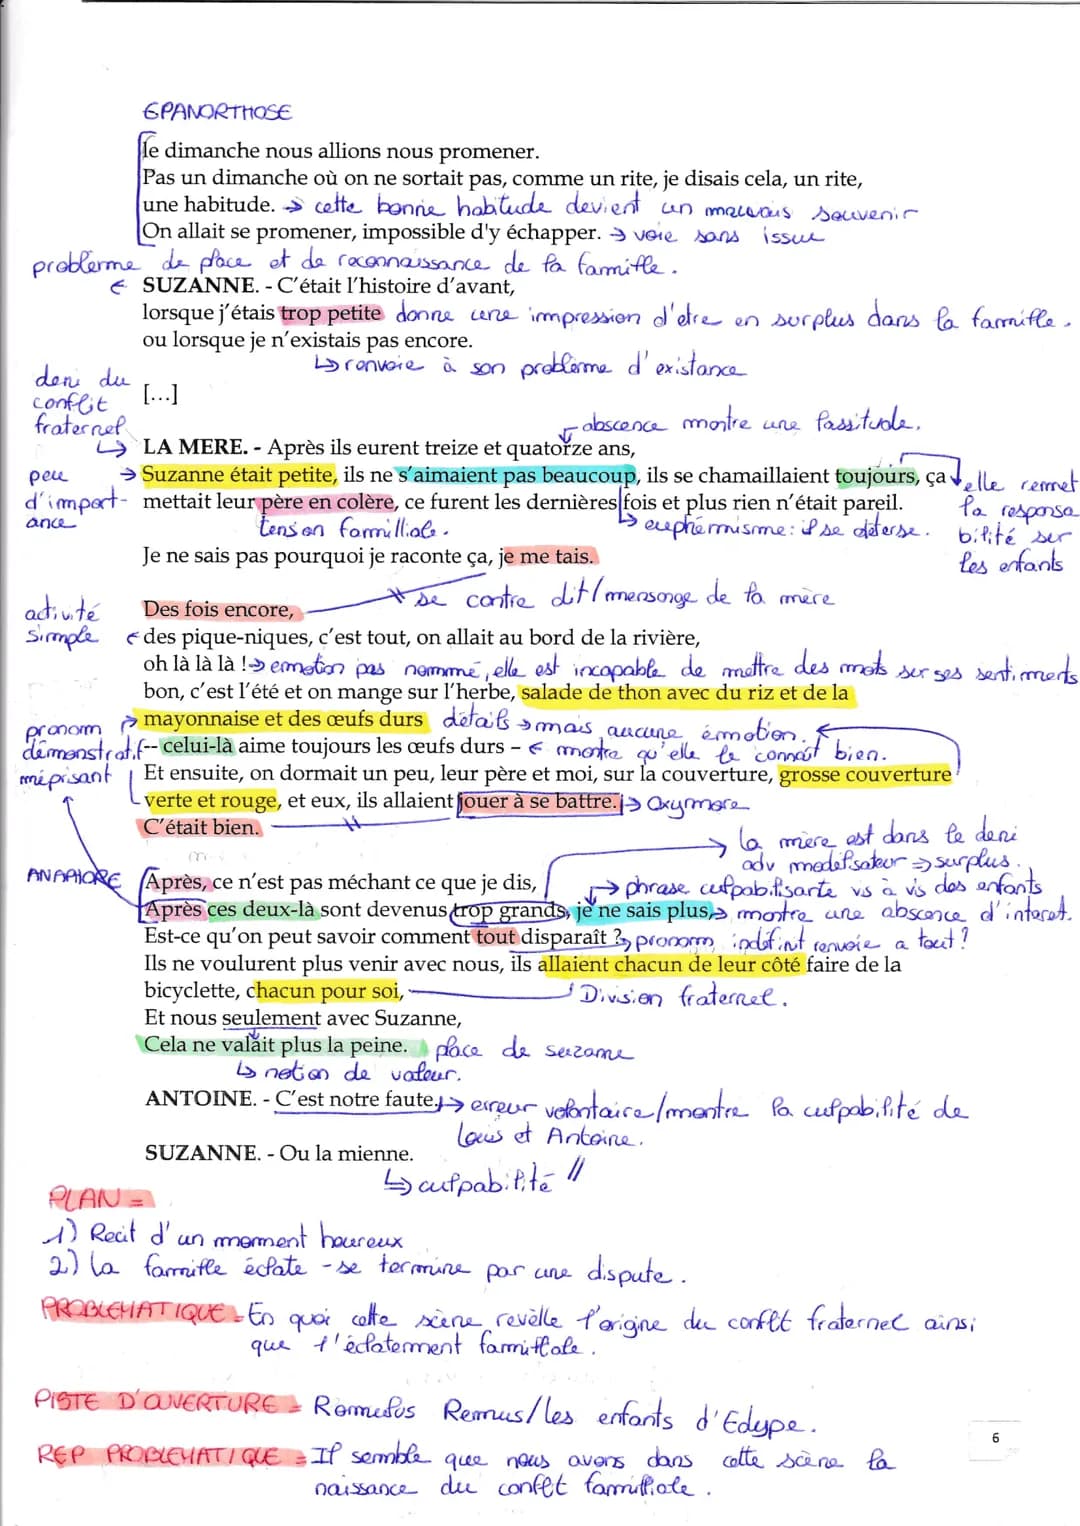 EPANORTHOSE
le dimanche nous allions nous promener.
Pas un dimanche où on ne sortait pas, comme un rite, je disais cela, un rite,
une habitude. → cette bonne habitude devient un mauvais souvenir
On allait se promener, impossible d'y échapper. → voie sans issue
problème de place et de reconnaissance de la famille.
← SUZANNE. - C'était l'histoire d'avant,
lorsque j'étais trop petite donne une impression d'etre en surplus dans la famille.
ou lorsque je n'existais pas encore.
↳ renvoie à son problème d'existance
deni du
conflit
fraternel
[...]
abscence montre une lassitude.
LA MERE. - Après ils eurent treize et quatorze ans,
peu
d'import-
ance
→ Suzanne était petite, ils ne s'aimaient pas beaucoup, ils se chamaillaient toujours, ça
mettait leur père en colère, ce furent les dernières fois et plus rien n'était pareil.
elle remet
la responsa
bilité sur
les enfants
tension familliale.
↳ euphémisme: il se déterse.
Je ne sais pas pourquoi je raconte ça, je me tais.
se contre dit/mensonge de la mère
Des fois encore,
activité
simple
← des pique-niques, c'est tout, on allait au bord de la rivière,
oh là là là ! → emotion pas nommé, elle est incapable de mettre des mots sur ses sentiments
bon, c'est l'été et on mange sur l'herbe, salade de thon avec du riz et de la
mayonnaise et des œufs durs détails → mais aucune émotion.
pronom
démonstratif
méprisant
-- celui-là aime toujours les œufs durs – ← montre qu'elle le connaît bien.
Et ensuite, on dormait un peu, leur père et moi, sur la couverture, grosse couverture
verte et rouge, et eux, ils allaient jouer à se battre. → Oxymore
C'était bien.
→ la mère est dans le deni
adv modélisateur ⇒ surplus.
ANAPHORE
Après, ce n'est pas méchant ce que je dis,
→ phrase culpabilisante vs à vis des enfants
Après ces deux-là sont devenus trop grands, je ne sais plus, → montre une abscence d'interet.
Est-ce qu'on peut savoir comment tout disparaît ? → pronom indéfinit renvoie a tout ?
Ils ne voulurent plus venir avec nous, ils allaient chacun de leur côté faire de la
bicyclette, chacun pour soi,
Division fraternel.
Et nous seulement avec Suzanne,
Cela ne valait plus la peine. place de suzanne
↳ notion de valeur.
ANTOINE. - C'est notre faute, → erreur volontaire/montre la culpabilité de
Louis et Antoine.
SUZANNE. - Ou la mienne.
↳ culpabilité //
PLAN =
1) Recit d'un moment heureux
2) La famille éclate - se termine par une dispute.
PROBLEMATIQUE = En quoi cette scène revèlle l'origine du conflt fraternel ainsi
que l'éclatement familiale.
PISTE D'OUVERTURE = Romulus Remus/les enfants d'Edype.
6
REP PROBLEMATIQUE = Il semble que nous avons dans cette scène la
naissance du conflt familliale.